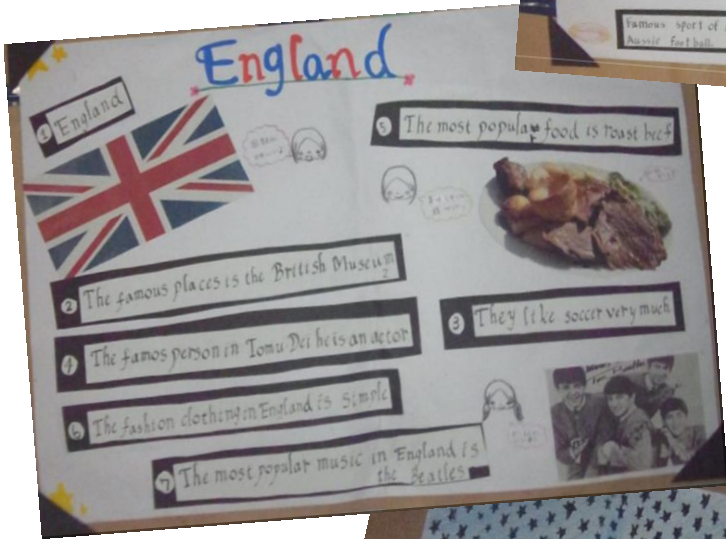 England
1 England
5 The most popular food is roast beef
2 The famous places is the British Museum
3 They like soccer very much
4 The famos person in Tomu Dei he is an actor
6 The fashion clothing in England is simple
7 The most popular music in England is
the Beatles
Famous sport of
Aussie football.